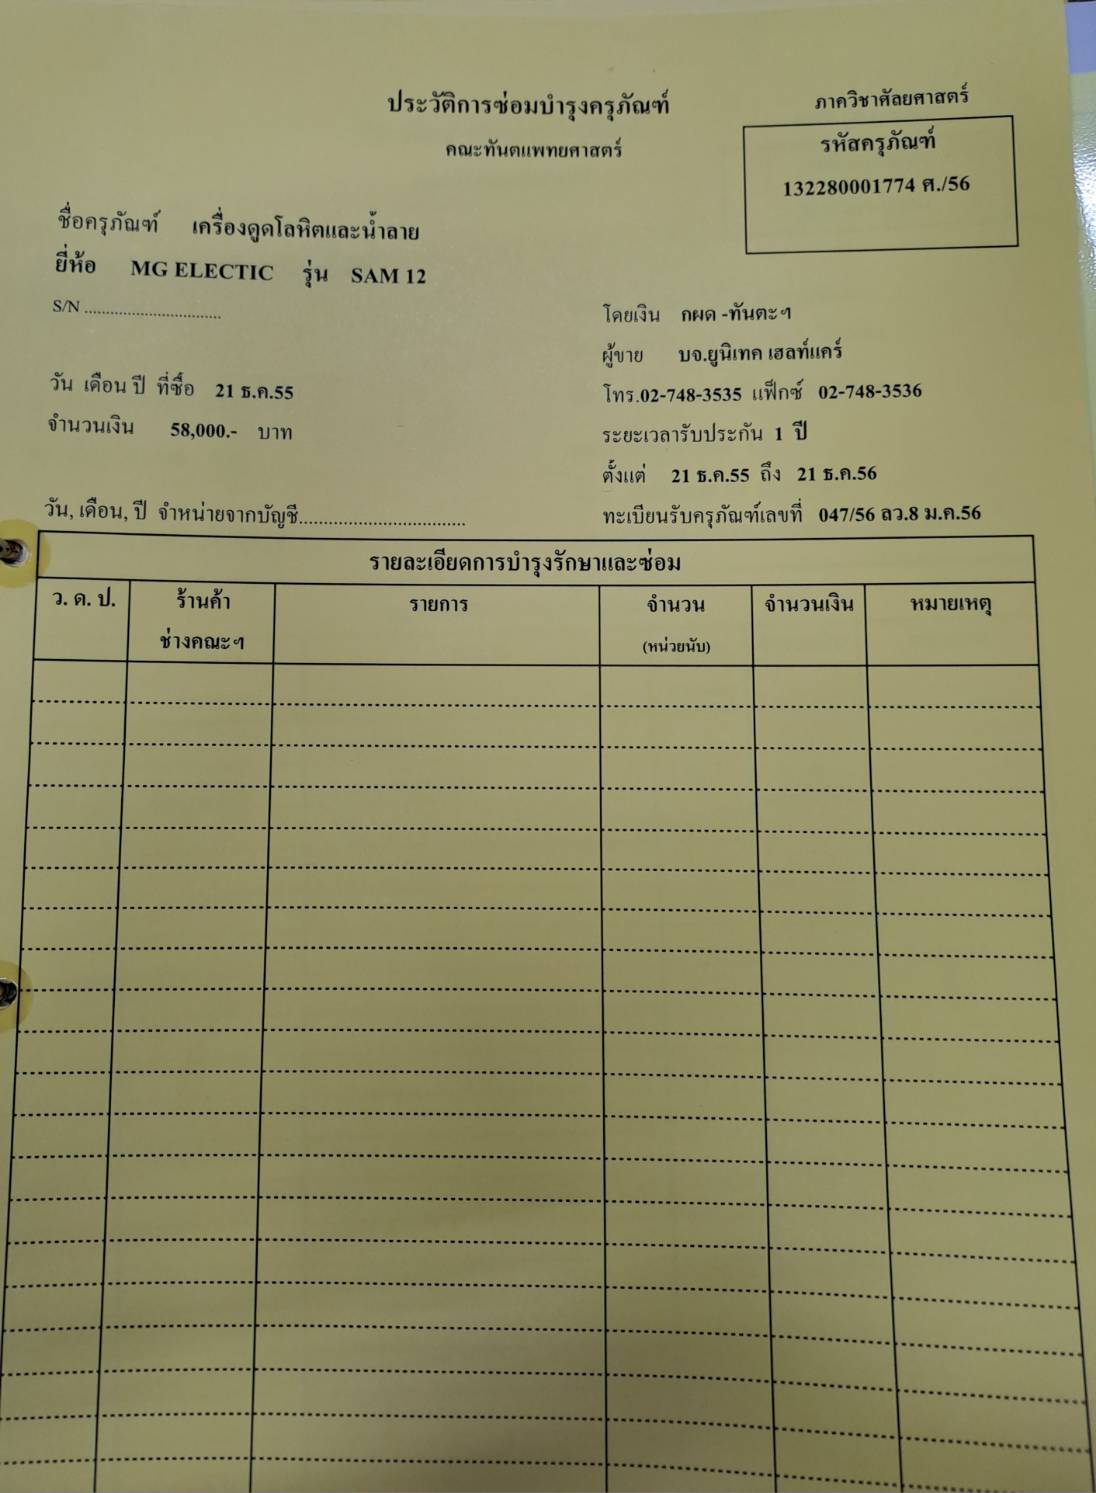 ประวัติการซ่อมบำรุงครุภัณฑ์
คณะทันตแพทยศาสตร์
ภาควิชาศัลยศาสตร์
รหัสครุภัณฑ์
132280001774 ศ./56
ชื่อครุภัณฑ์ เครื่องดูดโลหิตและน้ำลาย
ยี่ห้อ MG ELECTIC รุ่น SAM 12
S/N ................................
โดยเงิน กผด -ทันตะฯ
ผู้ขาย บจ.ยูนิเทค เฮลท์แคร์
วัน เดือน ปี ที่ซื้อ 21 ธ.ค.55
โทร.02-748-3535 แฟ็กซ์ 02-748-3536
จำนวนเงิน 58,000.- บาท
ระยะเวลารับประกัน 1 ปี
ตั้งแต่ 21 ธ.ค.55 ถึง 21 ธ.ค.56
วัน, เดือน, ปี จำหน่ายจากบัญชี................................
ทะเบียนรับครุภัณฑ์เลขที่ 047/56 ลว.8 ม.ค.56
รายละเอียดการบำรุงรักษาและซ่อม
ว. ด. ป. ร้านค้า รายการ จำนวน จำนวนเงิน หมายเหตุ
ช่างคณะฯ (หน่วยนับ)